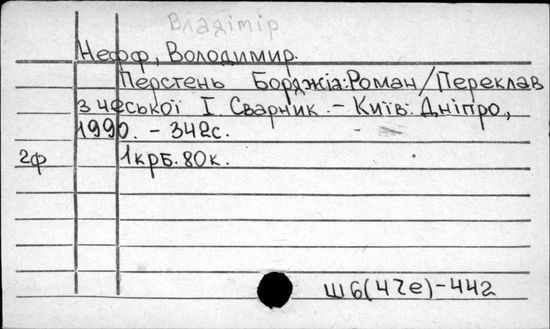 Владімір
Нефф, Володимир.
Перстень Борджіа: Роман / Переклав
з чеської І. Сварник. – Київ: Дніпро,
1990. – 342с.
2ф 1крб. 80к.
Ш6(4Че)-442